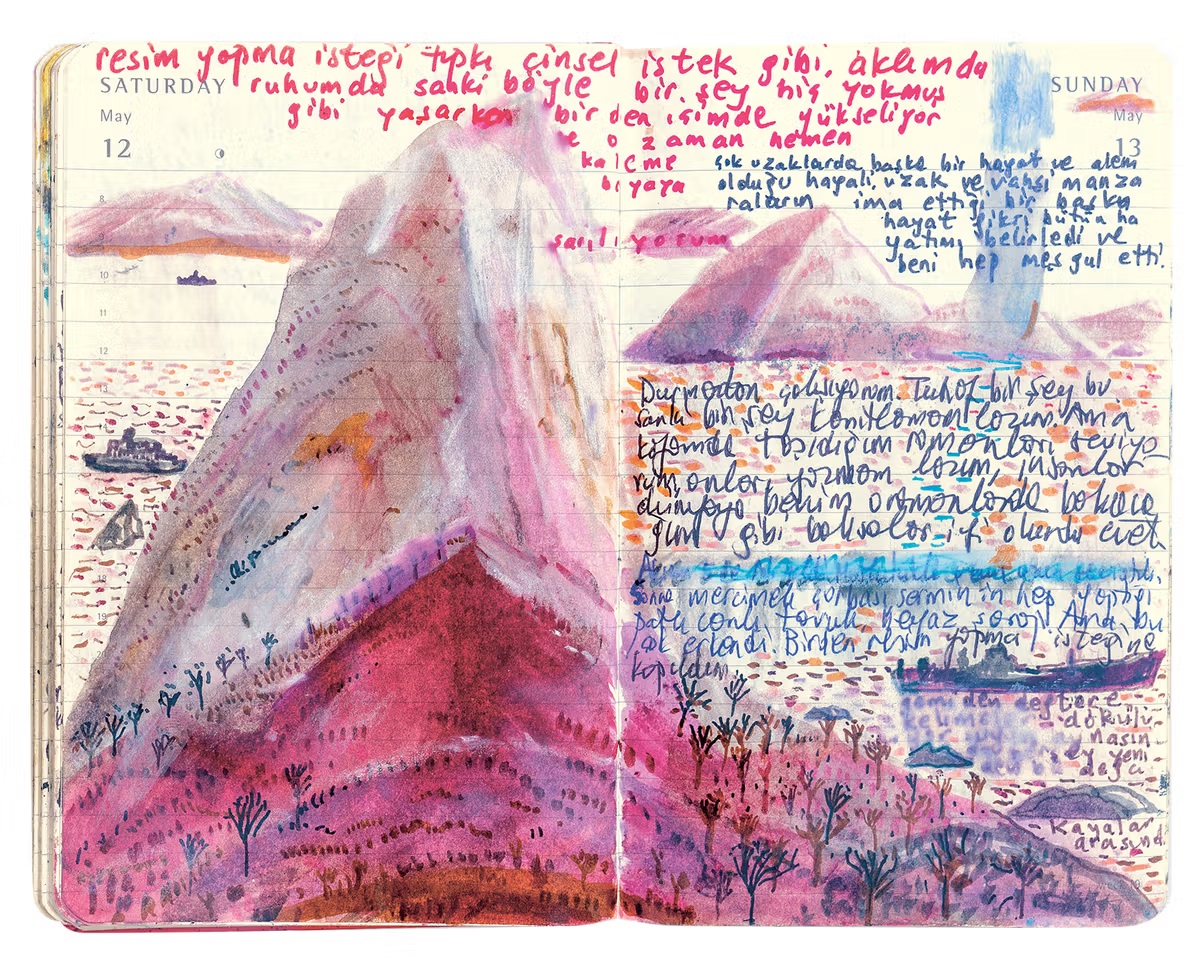 resim yapma isteği tıpkı cinsel istek gibi. aklımda
SATURDAY
ruhumda sanki böyle bir şey hiç yokmuş
May
gibi yaşarken birden içimde yükseliyor
12
ve o zaman hemen
kaleme
boyaya
sarılıyorum
8
10
11
12
13
18
19
SUNDAY
May
13
çok uzaklarda başka bir hayat ve alem
olduğu hayali, uzak ve vahşi manza
raların ima ettiği bir başka
hayat fikri bütün ha
yatımı belirledi ve
beni hep meşgul etti.
Durmadan çalışıyorum. Tuhaf bir şey bu
sanki bir şey kanıtlamam lazım. Ama
kafamda taşıdığım romanları seviyo
rum, onları yazmam lazım, insanlar
dünyaya benim romanlarda bakaca
ğım gibi baksalar iyi olurdu evet
Sonra mercimek çorbası sonra hep yaptığı
patlıcanlı tavuk beyaz Ama bu
çok erkendi. Birden resim yapma isteğine
kapıldım.
gemiden deftere
kelimeler dökülü
yeni
Kayalar
arasında